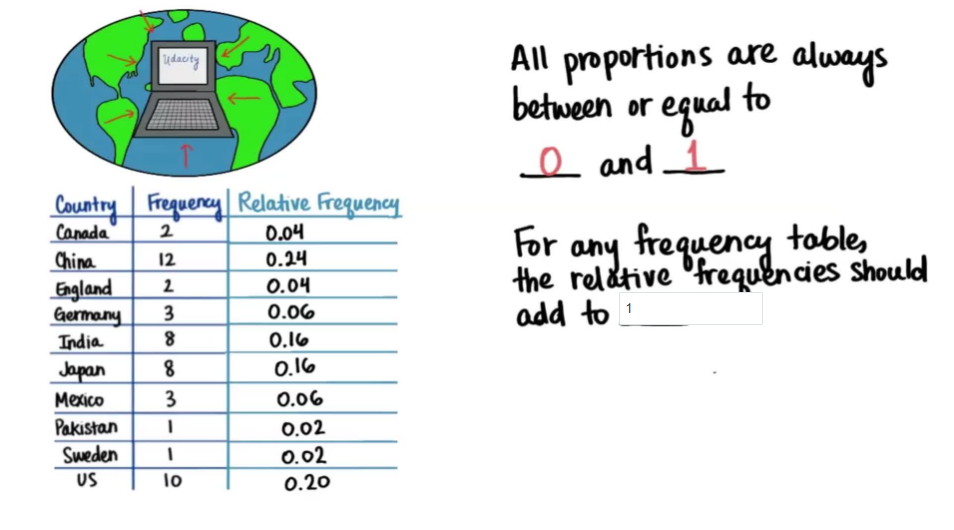 Udacity
Country Frequency Relative Frequency
Canada 2 0.04
China 12 0.24
England 2 0.04
Germany 3 0.06
India 8 0.16
Japan 8 0.16
Mexico 3 0.06
Pakistan 1 0.02
Sweden 1 0.02
US 10 0.20
All proportions are always
between or equal to
0 and 1
For any frequency table,
the relative frequencies should
add to 1